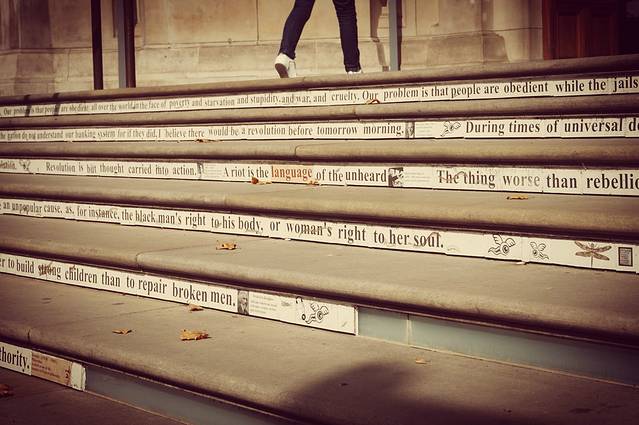 Our problem is that people are obedient all over the world in the face of poverty and starvation and stupidity, and war, and cruelty. Our problem is that people are obedient while the jails
do not understand our banking system for if they did, I believe there would be a revolution before tomorrow morning. During times of universal
Revolution is but thought carried into action. A riot is the language of the unheard The thing worse than
an unpopular cause, as, for instance, the black man's right to his body, or woman's right to her soul.
to build strong children than to repair broken men.